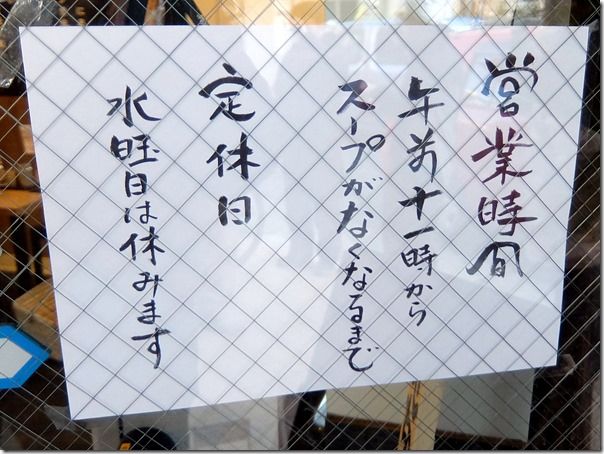 営業時間
午前十一時から
スープがなくなるまで
定休日
水曜日は休みます